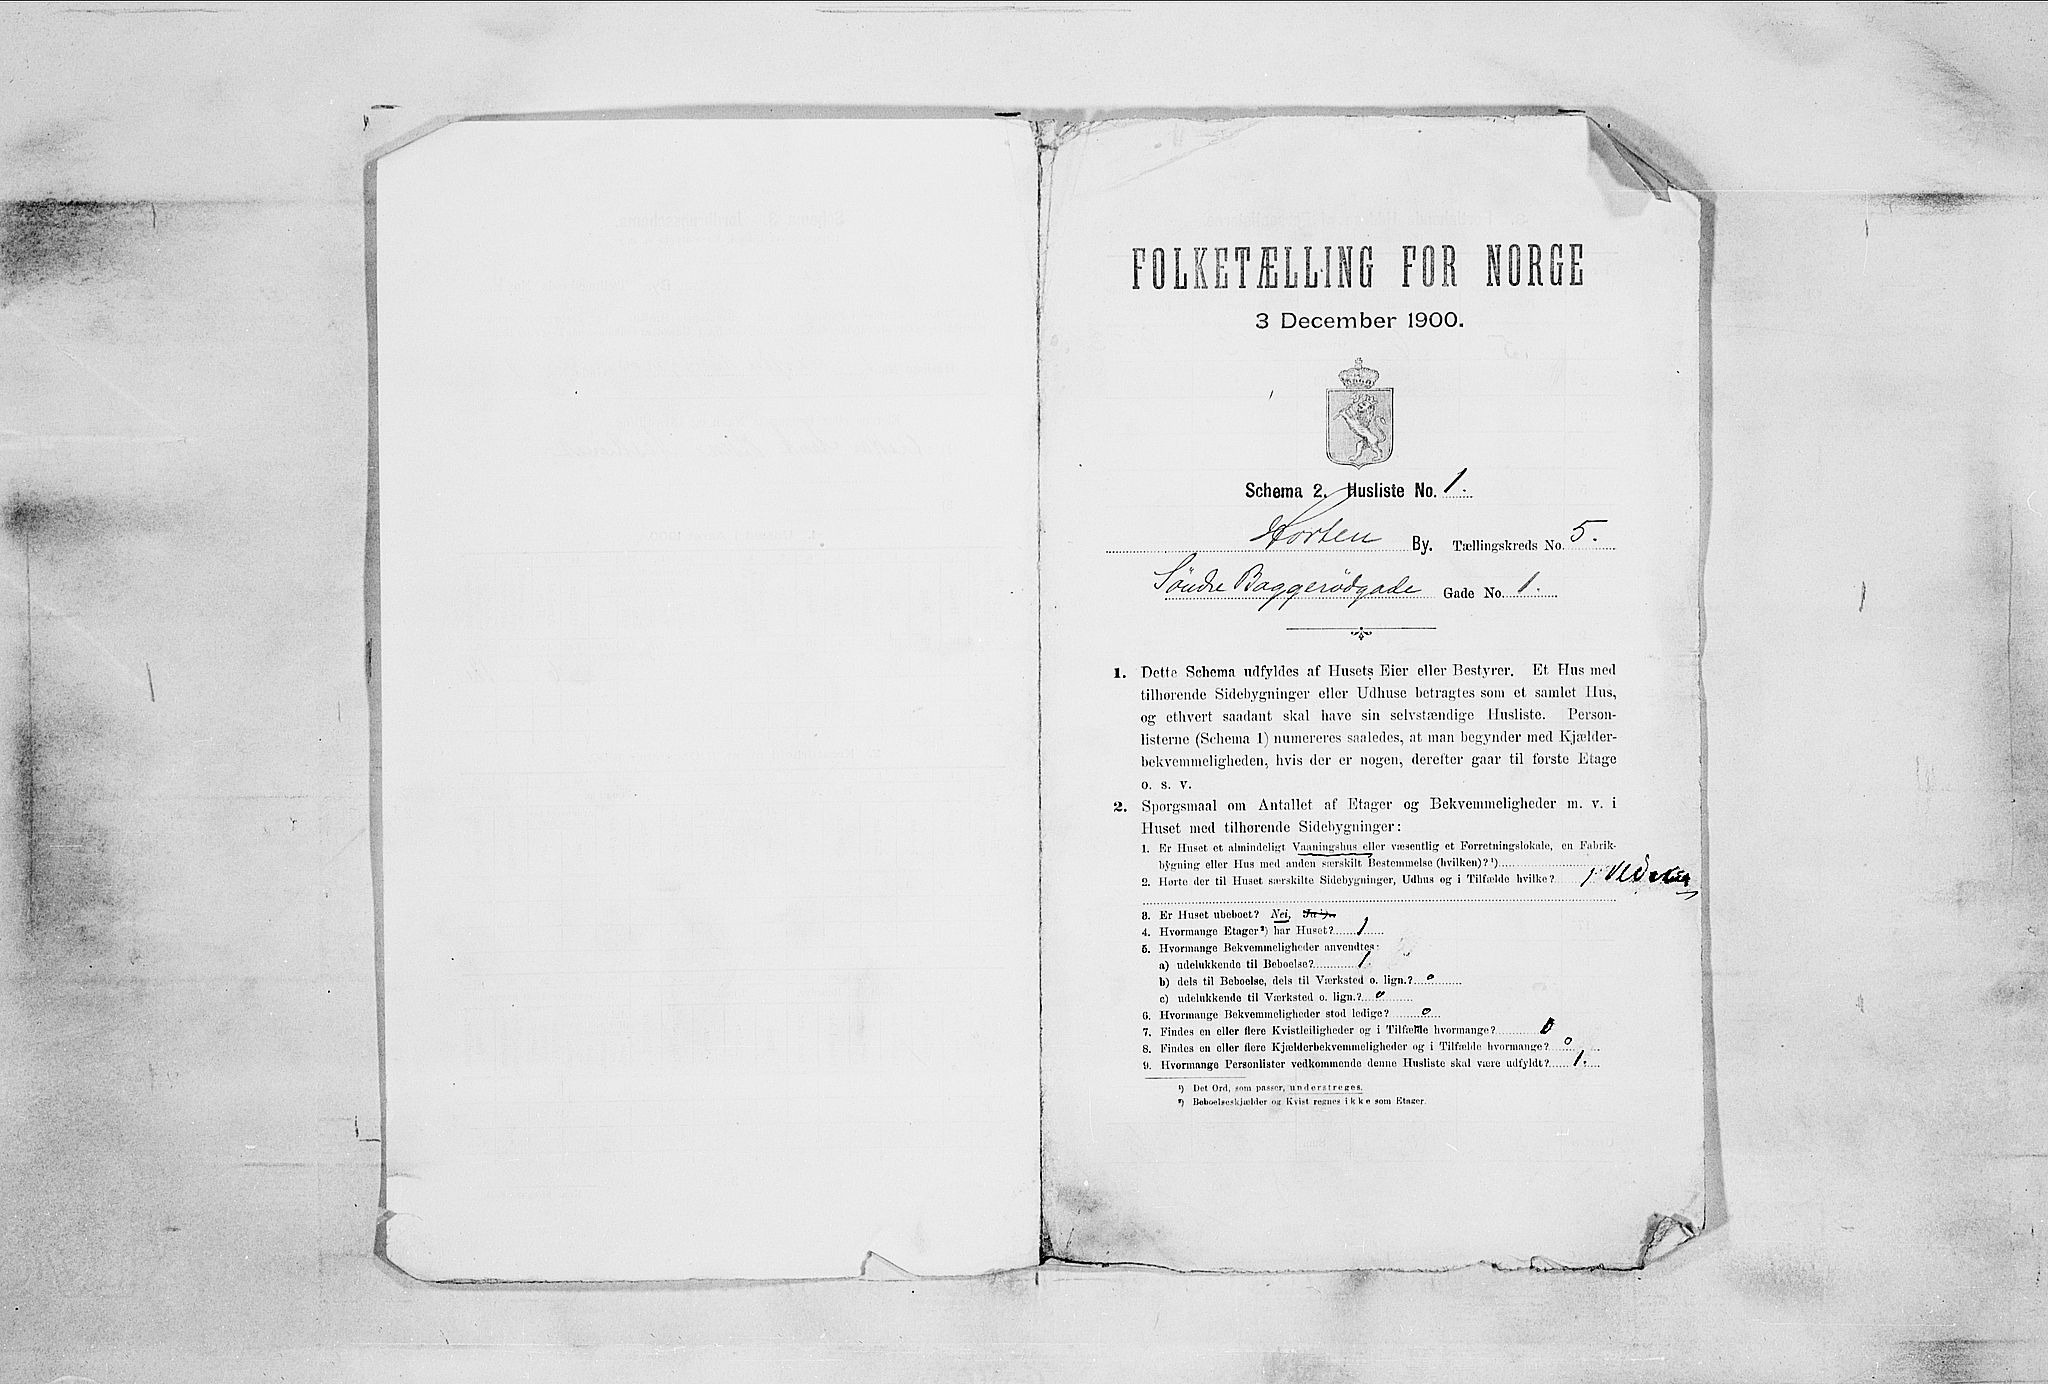 FOLKETÆLLING FOR NORGE
3 December 1900.
Schema 2. Husliste No. 1.
Horten By. Tællingskreds No. 5.
Söndre Baggerödgade Gade No. 1.
1. Dette Schema udfyldes af Husets Eier eller Bestyrer. Et Hus med
tilhørende Sidebygninger eller Udhuse betragtes som et samlet Hus,
og ethvert saadant skal have sin selvstændige Husliste. Person-
listerne (Schema 1) numereres saaledes, at man begynder med Kjælder-
bekvemmeligheden, hvis der er nogen, derefter gaar til første Etage
o. s. v.
2. Spørgsmaal om Antallet af Etager og Bekvemmeligheder m. v. i
Huset med tilhørende Sidebygninger:
1. Er Huset et almindeligt Vaaningshus eller væsentlig et Forretningslokale, en Fabrik-
bygning eller Hus med anden særskilt Bestemmelse (hvilken)?¹)
2. Hørte der til Huset særskilte Sidebygninger, Udhus og i Tilfælde hvilke? 1
3. Er Huset ubeboet? Nei, Ja¹).
4. Hvormange Etager²) har Huset? 1
5. Hvormange Bekvemmeligheder anvendtes:
a) udelukkende til Beboelse? 1
b) dels til Beboelse, dels til Værksted o. lign.? 0
c) udelukkende til Værksted o. lign.? 0
6. Hvormange Bekvemmeligheder stod ledige? 0
7. Findes en eller flere Kvistleiligheder og i Tilfælde hvormange? 0
8. Findes en eller flere Kjælderbekvemmeligheder og i Tilfælde hvormange? 0
9. Hvormange Personlister vedkommende denne Husliste skal være udfyldt? 1.
¹) Det Ord, som passer, understreges.
²) Beboelseskjælder og Kvist regnes ikke som Etager.